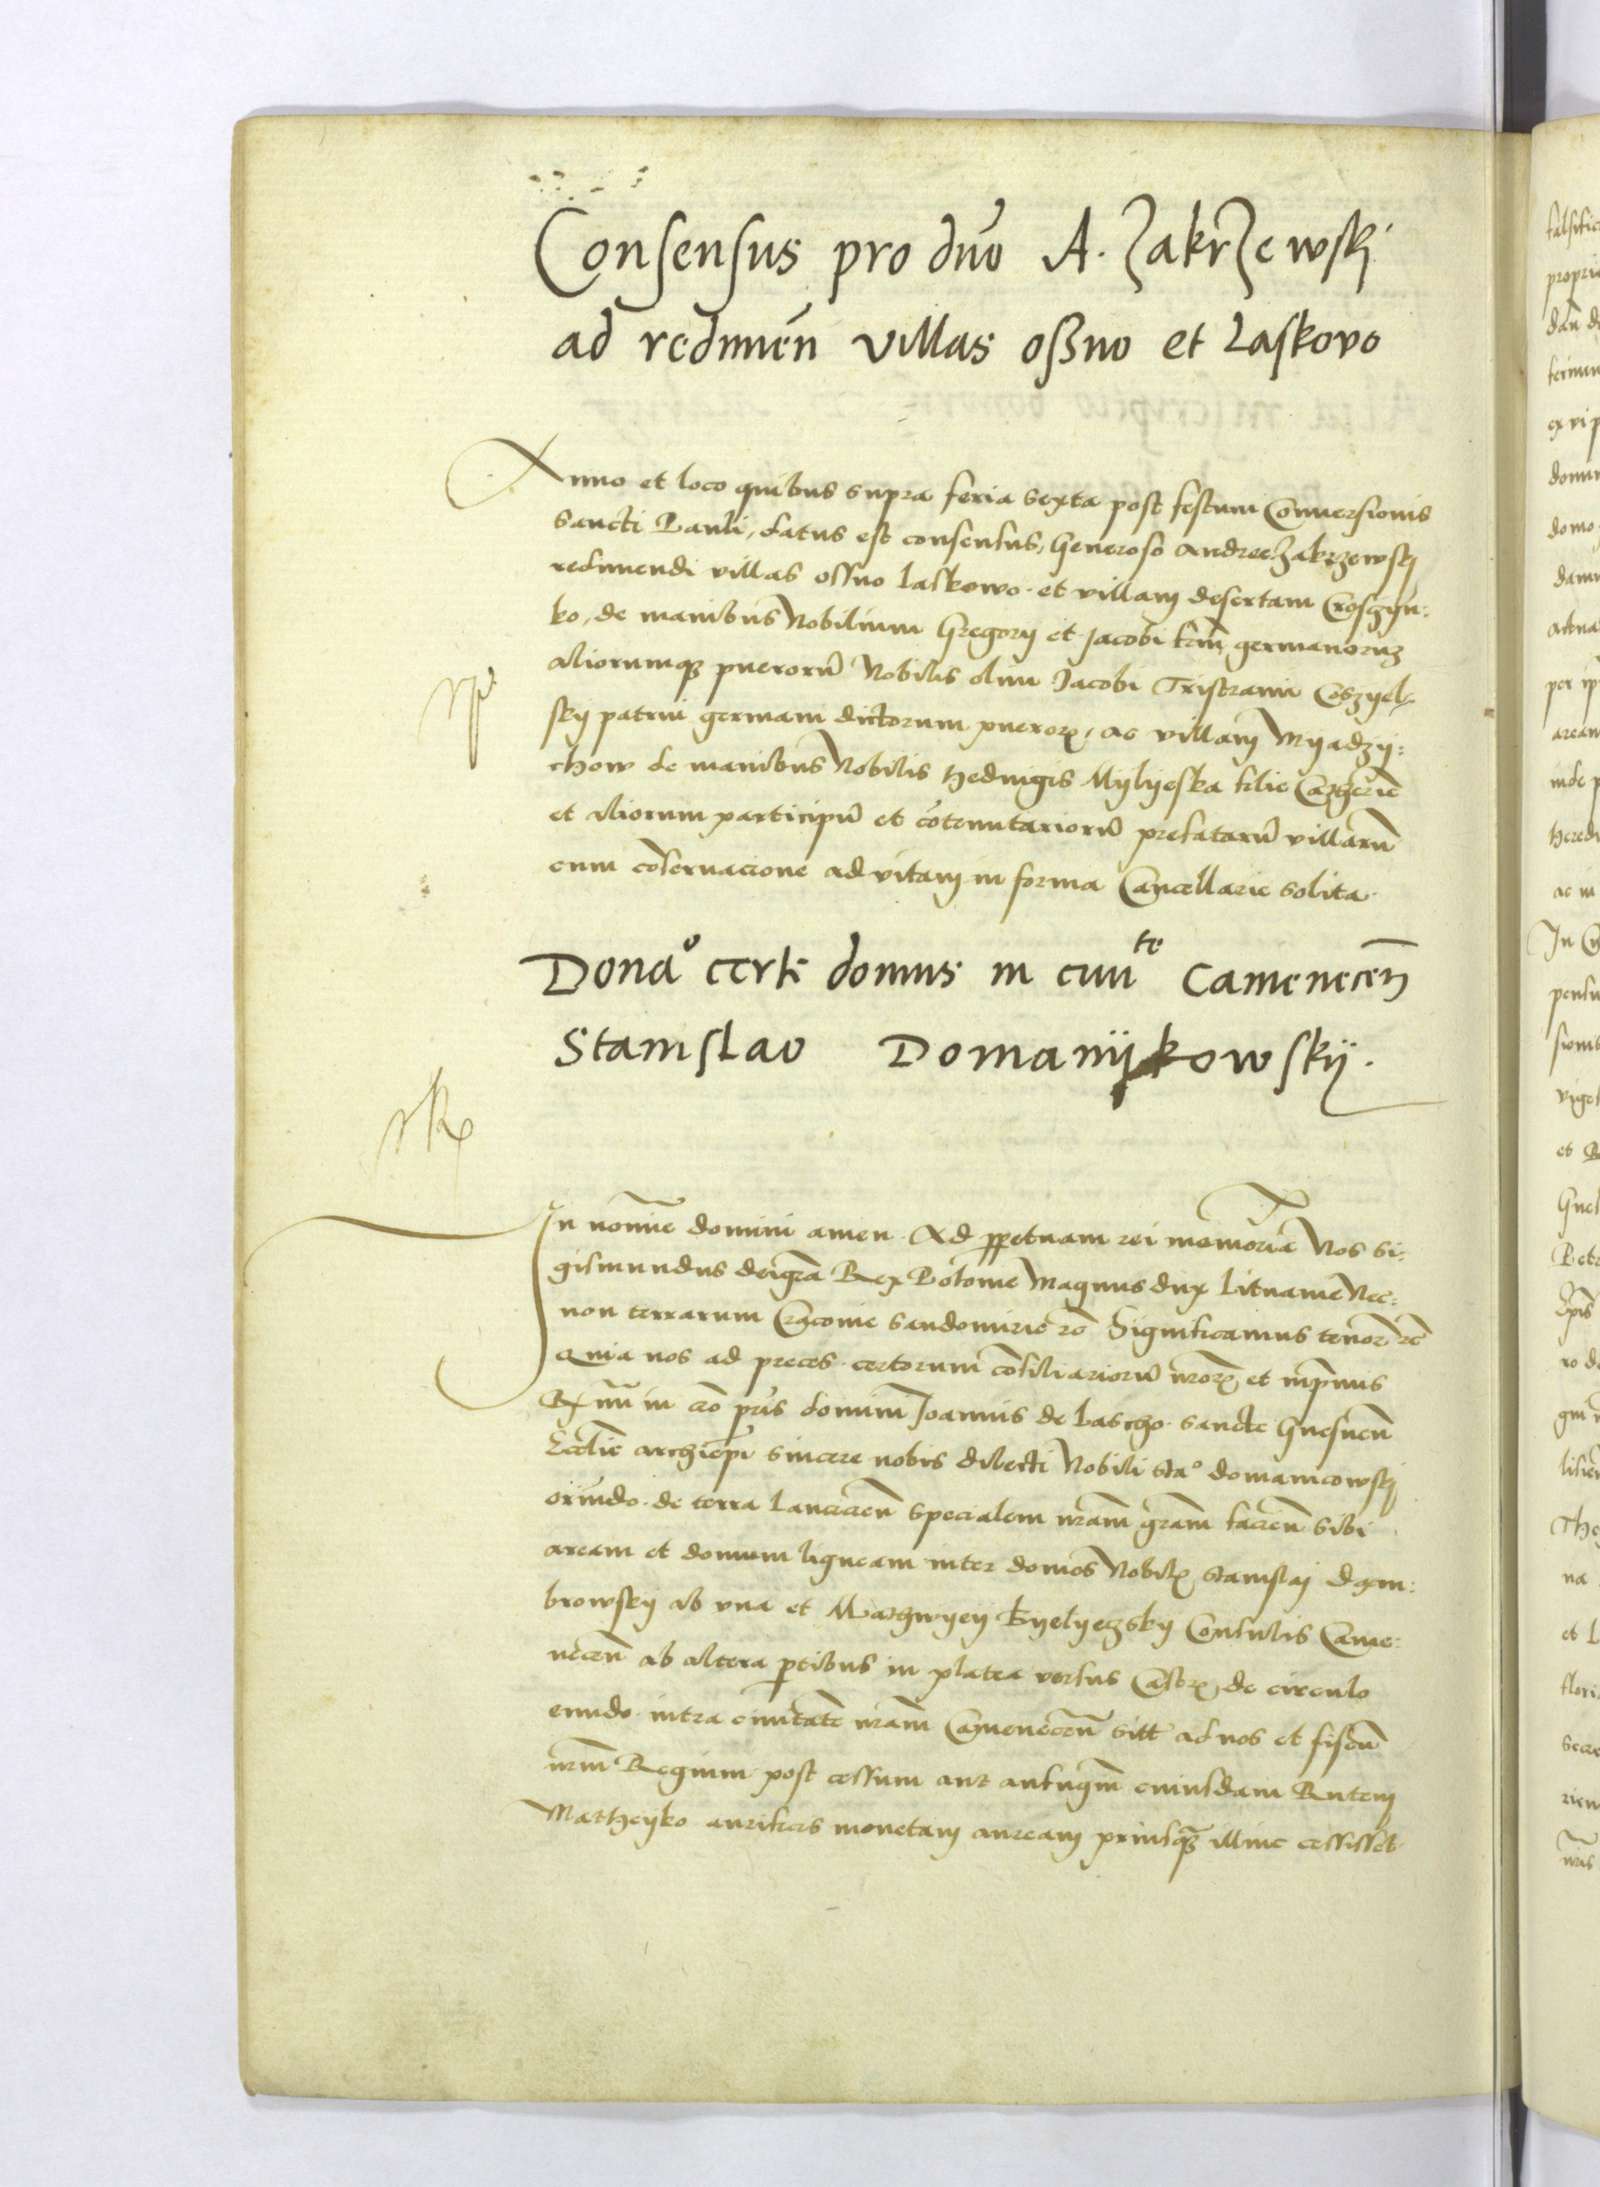 Consensus pro dno A. Zakrzewskj
ad redimen villas oszno et Laskovo
Anno et loco quibus supra feria sexta post festum Conuersionis
Sancti Pauli, datus est consensus, Generoso Andree Zakrzewskj
redimendi villas ossno Laskowo et villam desertam Crosgyn:
ko, de manibus Nobilium Gregorij et Jacobi frm germanoruz
aliorumqz puerorum Nobilis olim Jacobi Tristrami Coszyel
skij patrui germani dictorum pueror, ac villam Myadzy:
chow de manibus Nobilis Hedwigis Mylyeska filie
et aliorum participum et cotenutariorum prefatarum villarum
cum coseruacione ad vitam in forma Cancellarie solita.
Dona certe domus in ciuite Camenecen
Stanislao Domanijkowskij.
In nomine domini amen. Ad perpetuam rei memoria Nos Si:
gismundus dei gra Rex Polonie Magnus dux Lituanie Nec:
non terrarum Cracouie Sandomirie rc Significamus tenore rc
Quia nos ad preces certorum cosiliariorum nror et inprimis
Rmi in cro pris domini Joannis de Lascho sancte Gnesnen
Ecclie archiepi sincere nobis dilecti Nobili Sta domanicowskj
oriundo de terra Lancicien specialem nram gram facien sibi
aream et domum ligneam inter domos Nobil Stanislaj Dam:
browskij ab vna et Mathwyey Kyelyeczskij Consulis Came:
necen ab altera ptibus in platea versus de circulo
eundo intra ciuitate nram Camenecen sitt ad nos et fiscum
nrm Regium post cessum aut aufugm cuiusdam Ruteni
Matheyko aurificis monetam auream priusqz illinc cessisset